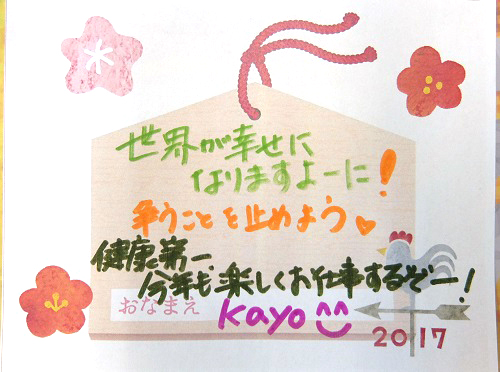 世界が幸せに
なりますよーに!
争うことを止めよう♡
健康第一
今年も楽しくお仕事するぞー!
おなまえ kayo ^^
2017